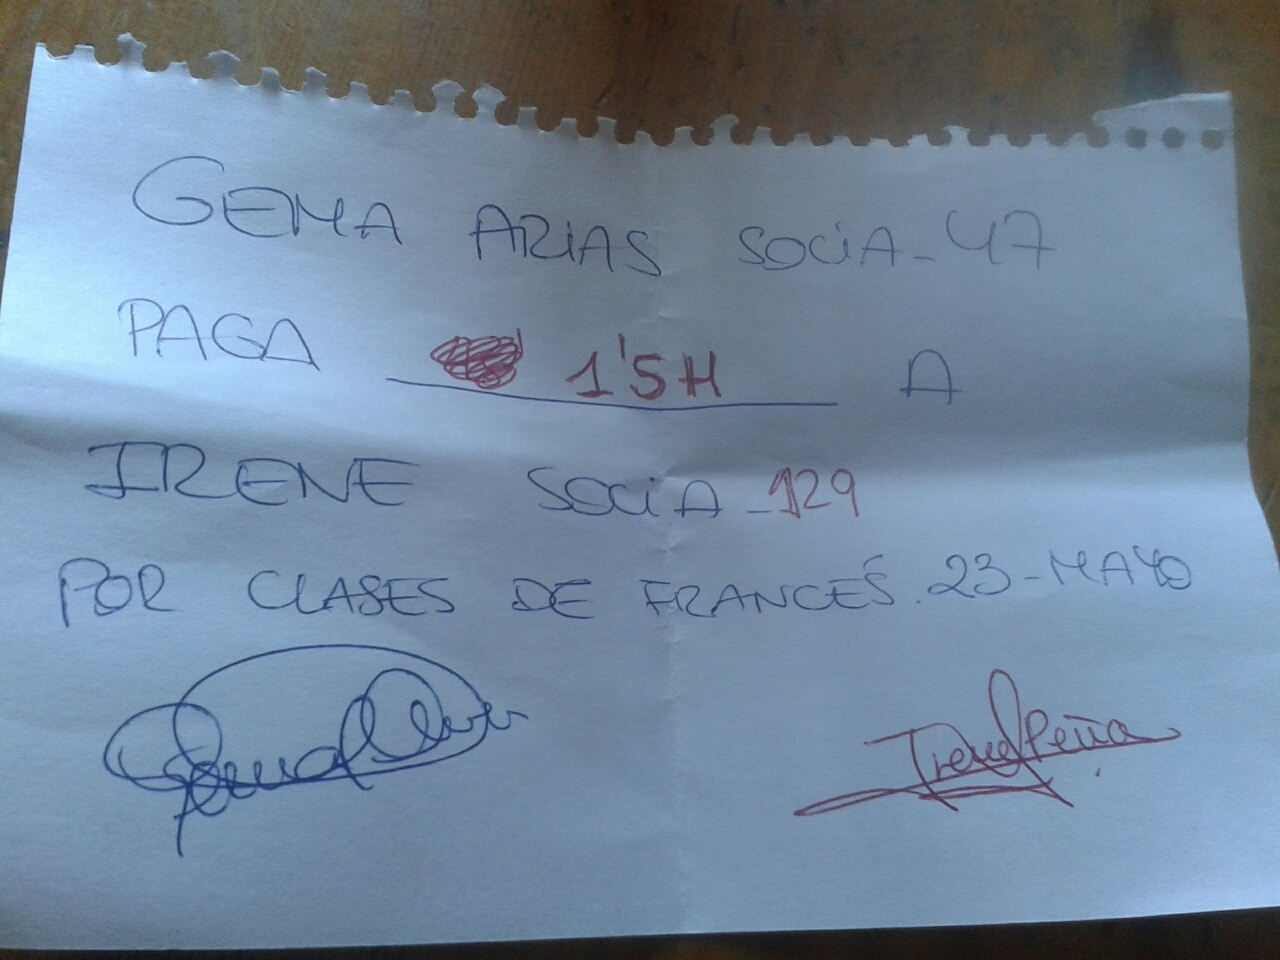 GEMA ARIAS SOCIA-47
PAGA 1'5H A
IRENE SOCIA-129
POR CLASES DE FRANCÉS. 23-MAYO
Irene Peña